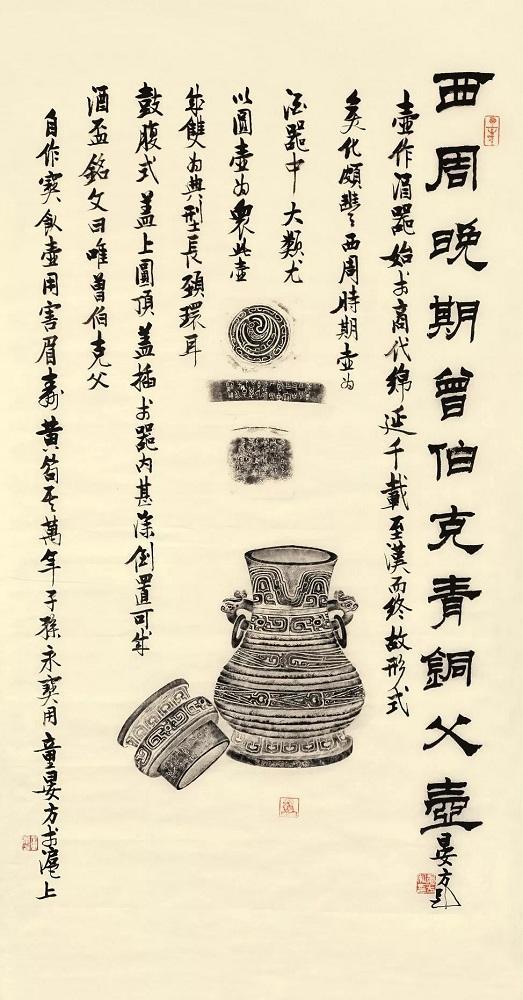 西周晚期曾伯克青銅父壺
晏方題
壺作酒器始於商代綿延千載至漢而終故形式
變化頗豐西周時期壺為
酒器中大類尤
以圓壺為衆此壺
成雙為典型長頸環耳
鼓腹式蓋上圓頂蓋插於器內甚深倒置可成
酒盃銘文曰唯曾伯克父
自作寶飲壺用害眉壽黃耇其萬年子孫永寶用童晏方於滬上